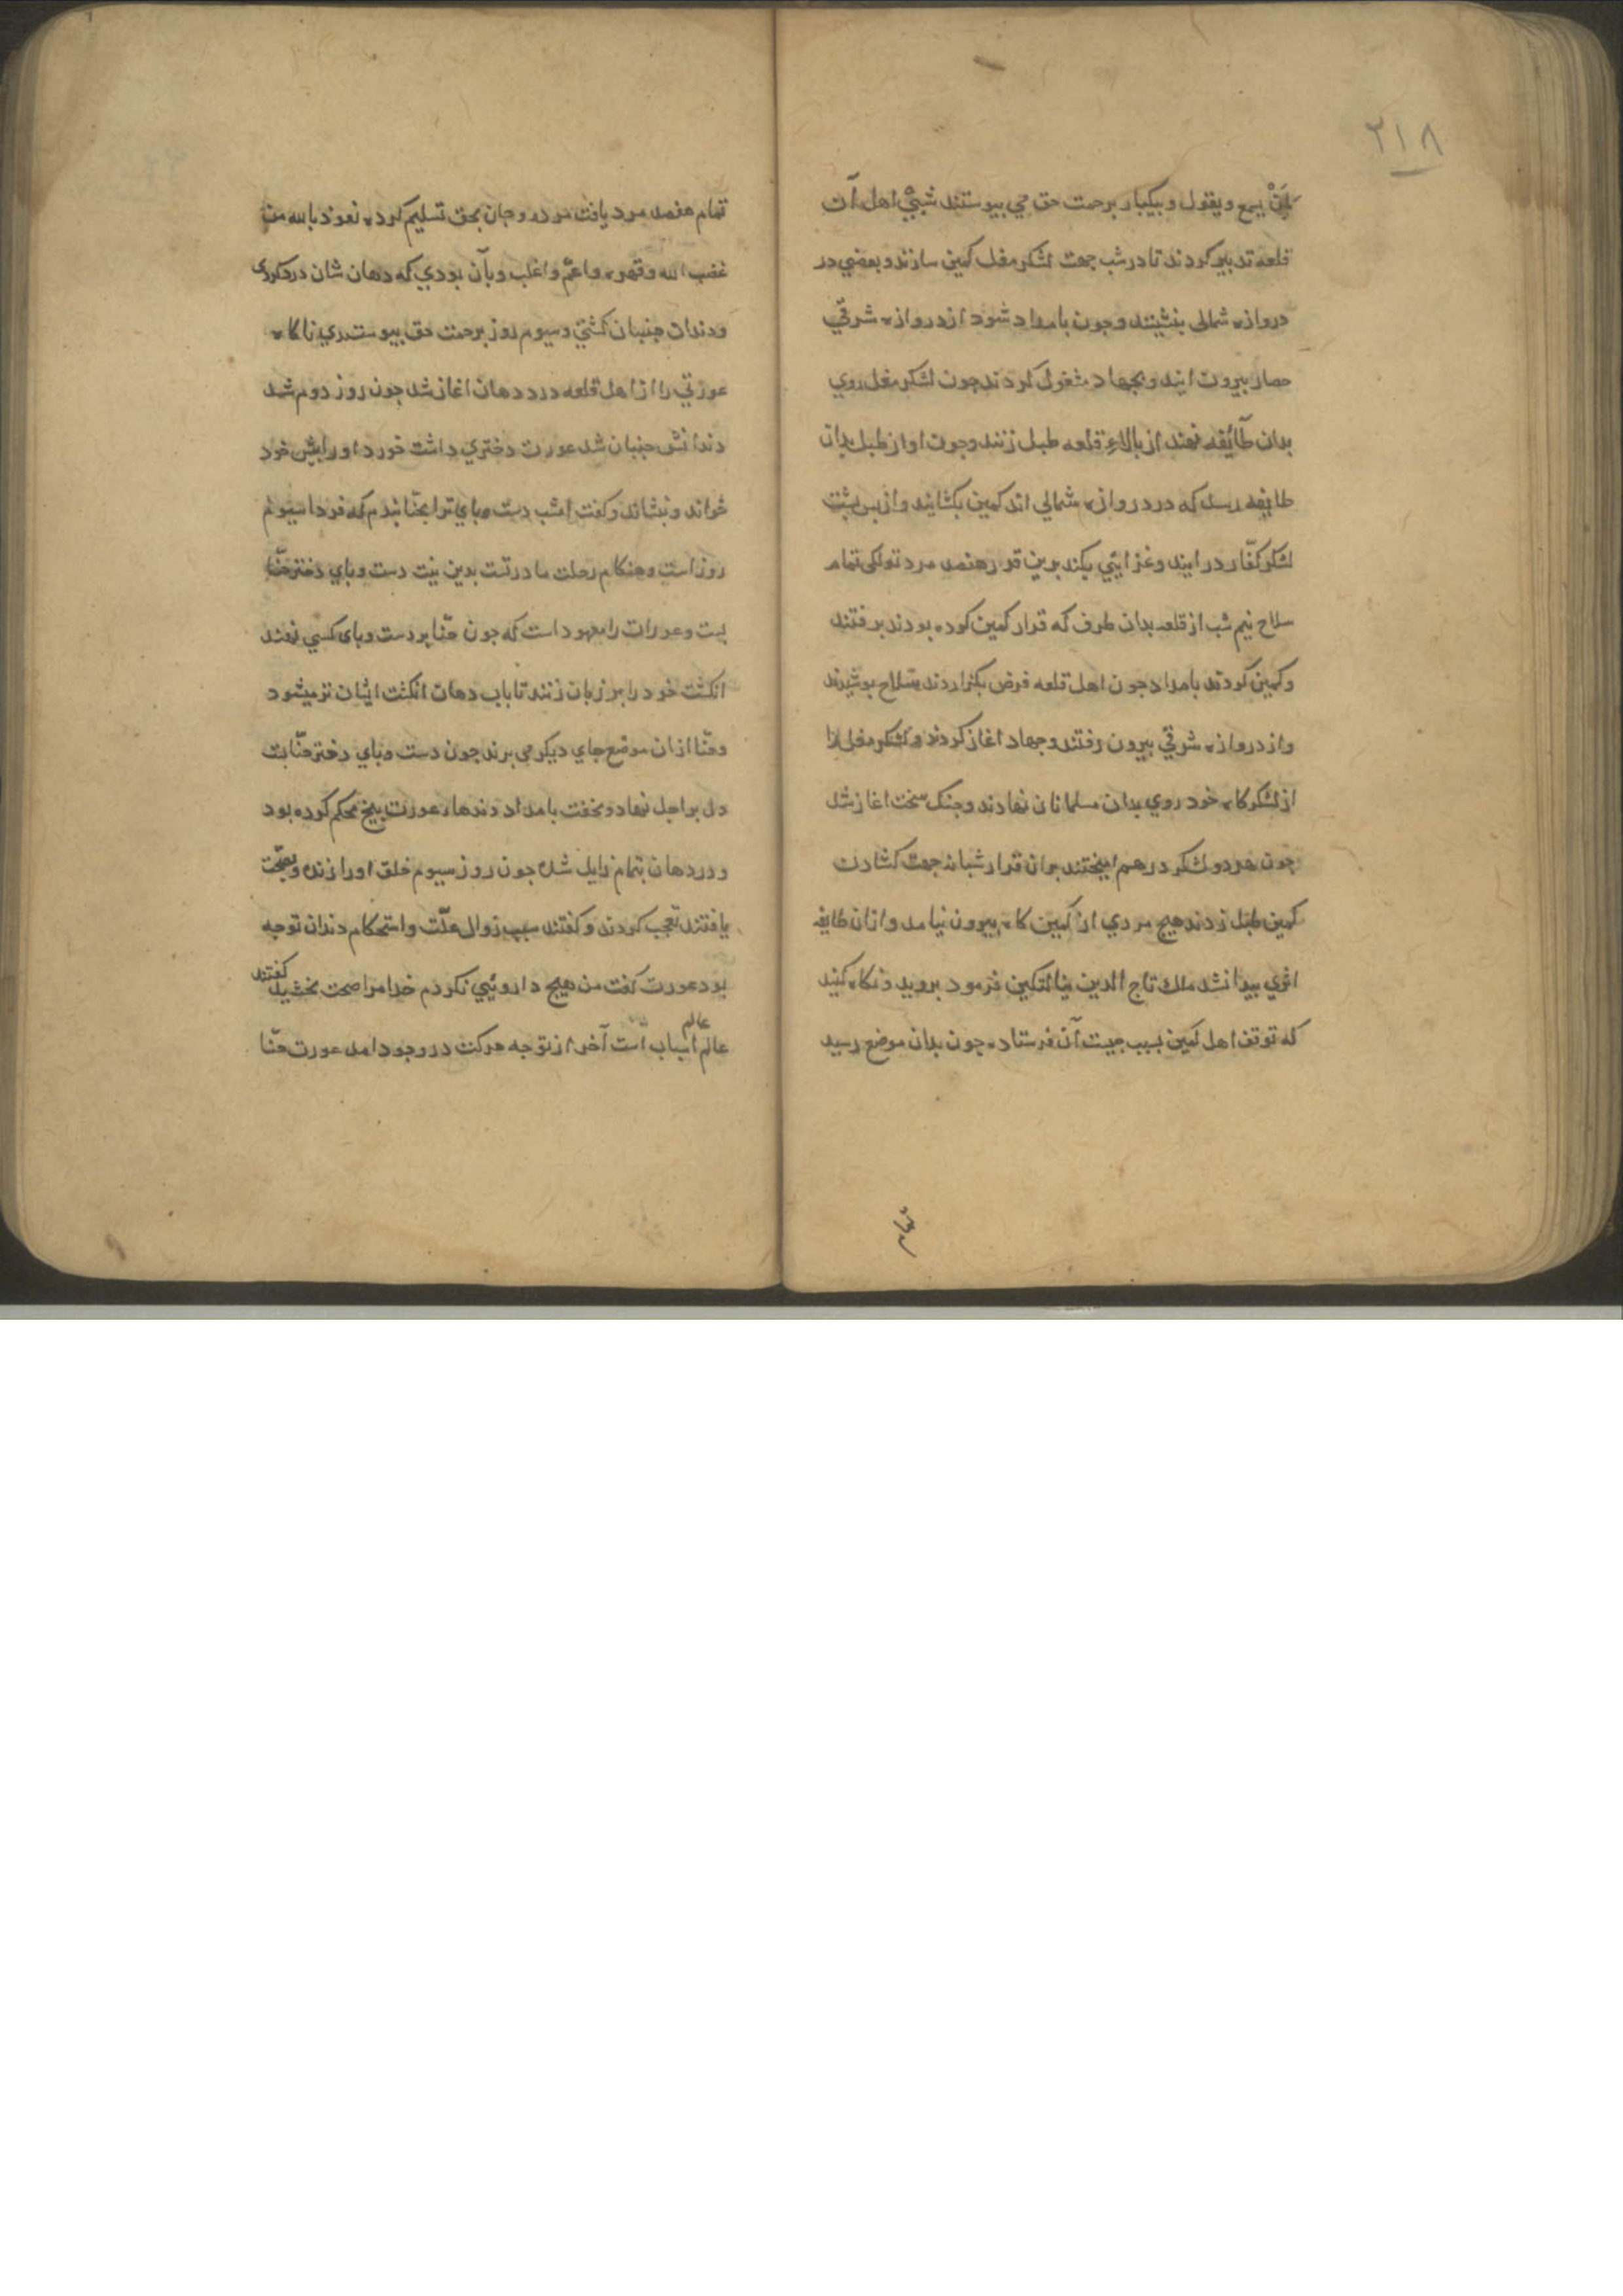 ٢١٨
یسمع ویقول و بیکبار برحمت حق می بیوستند شبی اهل آن
قلعه تدبیر کردند تا در شب جهت لشکر مغل کمین سازند و بعضی در
دروازه شمالی بنشینند وجون بامداد شود از دروازه شرقی
حصار بیرون ایند و بجهاد مشغول کردند جون لشکر مغل روی
بدان طآئفه نهند از بالاء قلعه طبل زنند وجون اواز طبل بدان
طایفه رسد که در دروازه شمالی اند کمین بکشایند و از بس بشت
لشکر کفّار در ایند و غزایئی بکند برین قرار هفصد مرد تولکی تمام
سلاح نیم شب از قلعه بدان طرف که قرار کمین کوده بودند برفتند
وکمین کودند بامداد جون اهل قلعه فرض بکزاردند سلاح بوشیدند
واز دروازه شرقی بیرون رفتند وجهاد اغاز کردند و لشکر مغل را
از لشکرکاه خود روی بدان مسلمانان نهادند وجنک سخت اغاز شد
جون هر دو لشکر در هم امیختند بران قرار شبانه جهت کشادن
کمین طبل زدند هیج مردی از کمین کاه بیرون نیامد و ازان طایفه
اثری بیدا نشد ملک تاج الدین ینالتکین فرمود بروید و نکاه کنید
که توقف اهل کمین بسبب جیست آن فرستاده جون بدان موضع رسید
تمام هفصد مرد یافت مرده وجان بحق تسلیم کرده نعوذ بالله من
غضب الله وقهره واعمّ و اغلب وبآن بودی که دهان شان درد کردی
ودندان جنبان کشتی و سیوم روز برحمت حق بیوستدی ناکاه
عورتی را از اهل قلعه درد دهان اغاز شد جون روز دوم شد
دندانش جنبان شد عورت دختری داشت خورد او را بیش خود
خواند و بنشاند و کفت امشب دست وبای ترا بحنّا بندم که فردا سیوم
روز است وهنکام رحلت مادر تست بدین نیت دست وبای دختر حنّا
بست وعورات را معهود است که جون حنّا بر دست وبای کسی نهند
انکشت خود را بر زبان زنند تا باب دهان انکشت ایشان تر میشود
وحنّا ازان موضع جای دیکر می برند جون دست وبای دختر حنّا بست
دل بر اجل نهاد و بخفت بامداد دندهاء عورت بیخ محکم کرده بود
ودرد دهان بتمام زایل شده جون روز سیوم خلق اورا زنده وبصحّت
یافتند تعجب کردند و کفتند سبب زوال علّت واستحکام دندان توجه
بود عورت کفت من هیج داروئیی نکردم خدا مرا صحت بخشید کفتند
عالم
عالم اسباب است آخر از توجه حرکت در وجود امد عورت حنّا